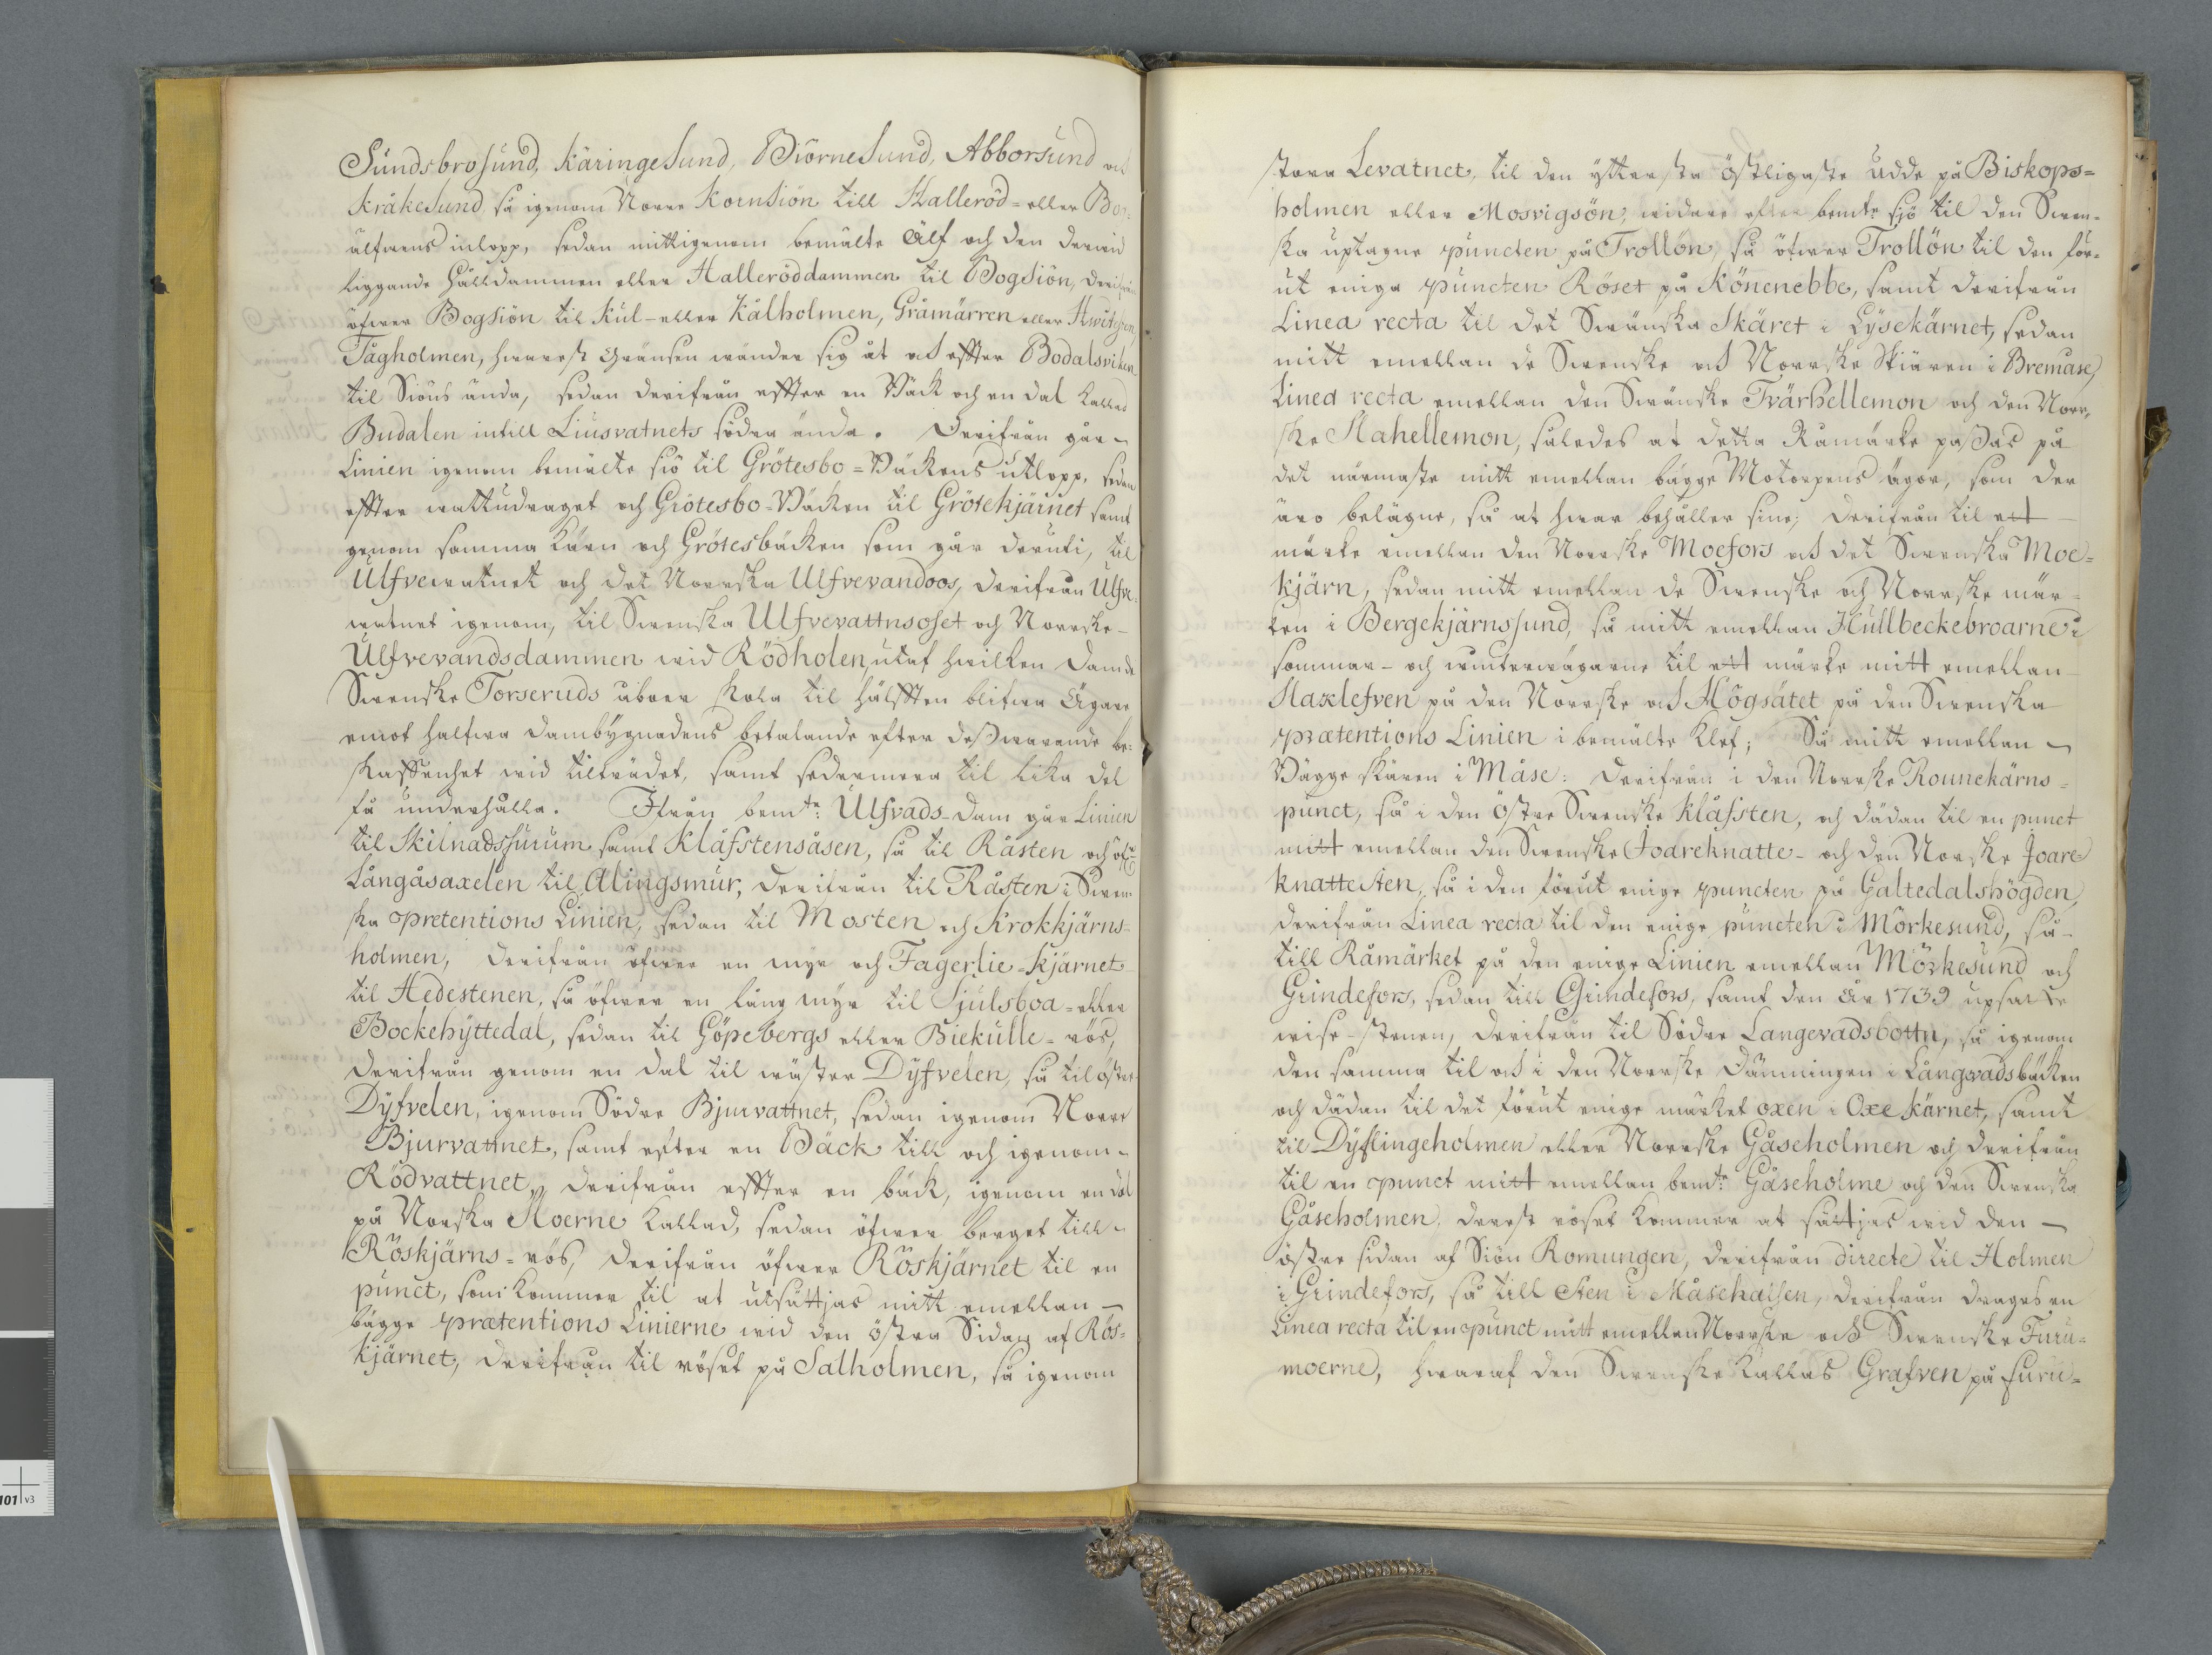 Sundsbrosund, Käringesund, Biörnesund, Abborsund och
Kråkesund så igenom Norre Kornsiön till Halleröd- eller Bog-
älfwens inlopp, sedan mittigenom bemälte Älf och den derwid
liggande Hålldammen eller Halleröddammen til Bogsiön, derifrån
öfwer Bogsiön til Kul- eller Kålholmen, Gråmärren eller
Tågholmen, hwarest Gränsen wänder sig åt och effter Bodalsviken
til Siöns ända, sedan derifrån effter en Bäck och en dal kallad
Budalen intill Liusvatnets södra ända. Derifrån går
Linien igenom bemälte siö til Grötesbo-Bäckens utlopp, sedan
effter wattudraget och Grötesbo-Bäcken til Grötekjärnet samt
genom samma Kärn och Grötesbäcken som går deruti, til
Ulfvewatnet och det Norrska Ulfvevandoos, derifrån Ulfve-
watnet igenom, til Swenska Ulfvevattnsoset och Norrske
Ulfvevandsdammen wid Rödholen, utaf hwilken Dam de
Swenske Torseruds åboer skola til hälfften blifwa Ägare
emot halfwa dambygnadens betalande efter desswarande be-
skaffenhet wid tilträdet, samt sedermera til lika del
få underhålla. Ifrån bemte: Ulfvads-Dam går Linien
til Skilnadsfurum samt Klåfstensåsen, så til Råsten och öfwer
Långåsaxelen til Alingsmur, derifrån til Råsten i Swen-
ska pretentions Linien, sedan til Mosten och Krokkjärns-
holmen, derifrån öfwer en myr och Fagerlie-Kjärnet
til Hedestenen, så öfwer en lång myr til Sjulsboa- eller
Bockehyttedal, sedan til Göpebergs eller Biekulle-rös,
derifrån genom en dal til wäster Dyfvelen, så til öster
Dyfvelen, igenom Södre Bjurvattnet, sedan igenom Norre
Bjurvattnet, samt efter en Bäck till och igenom
Rödvattnet, derifrån effter en bäck, igenom en dal
på Norska Moerne kallad, sedan öfwer berget till
Röskjärns-rös, derifrån öfwer Röskjärnet til en
punct, som kommer til at utsättjas mitt emellan
bägge prætentions Linierne wid den östra Sidan af Rös-
kjärnet, derifrån til röset på Salholmen, så igenom
stora Levatnet, til den ytterste östligaste udde på Biskops-
holmen eller Mosvigsön, widare efter bemte sjö til den Swen-
ska uptagne puncten på Trollön, så öfwer Trollön til den för-
ut eniga puncten Röset på Könenebbe, samt derifrån
Linea recta til det Swänska Skäret i Lysekärnet, sedan
mitt emellan de Swenske och Norrske Skiären i Bremåse,
Linea recta emellan den Swänske Tvärhellemon och den Norr-
ske Hahellemon, således at detta Råmärke passas på
det närmaste mitt emellan bägge Motorpens ägor, som der
äro belägne, så at hwar behåller sine; derifrån til ett
märke emellan den Norrske Moefors och det Swenska Moe-
kjärn, sedan mitt emellan de Swenske och Norrske mär-
ken i Bergekjärnssund, så mitt emellan Hullbeckebroarne i
sommar- och winterwägarne til ett märke mitt emellan
Haxlefven på den Norrske och Högsätet på den Swenska
prætentions Linien i bemälte Klef; Så mitt emellan
Bägge skären i Måse: Derifrån i den Norrske Rounekärns-
punct, så i den östre Swenske Klåfsten, och dädan til en punct
mitt emellan den Swenske Joareknatte- och den Norske Joare
knattesten, så i den förut enige puncten på Galtedalshögden,
derifrån Linea recta til den enige puncten i Mörkesund, så
till Råmärket på den enige Linien emellan Mörkesund och
Grindefors, sedan till Grindefors, samt den år 1739 upsatte
wise-stenen, derifrån til Södre Langevadsbottn, så igenom
den samma til och i den Norrske Dämningen i Långevadsbäcken
och dädan til det förut enige märket oxen i Oxekärnet, samt
til Dyflingeholmen eller Norrske Gåseholmen och derifrån
til en punct mitt emellan bemte: Gåseholme och den Swenska
Gåseholmen, derest röset kommer at sättjas wid den
östre sidan af Siön Romungen, derifrån directe til Holmen
i Grindefors, så till Sten i Måsehalsen, derifrån drages en
Linea recta til en punct mitt emellan Norrske och Swenske Furu-
moerne, hwaraf den Swenske kallas Grafven på Furu-